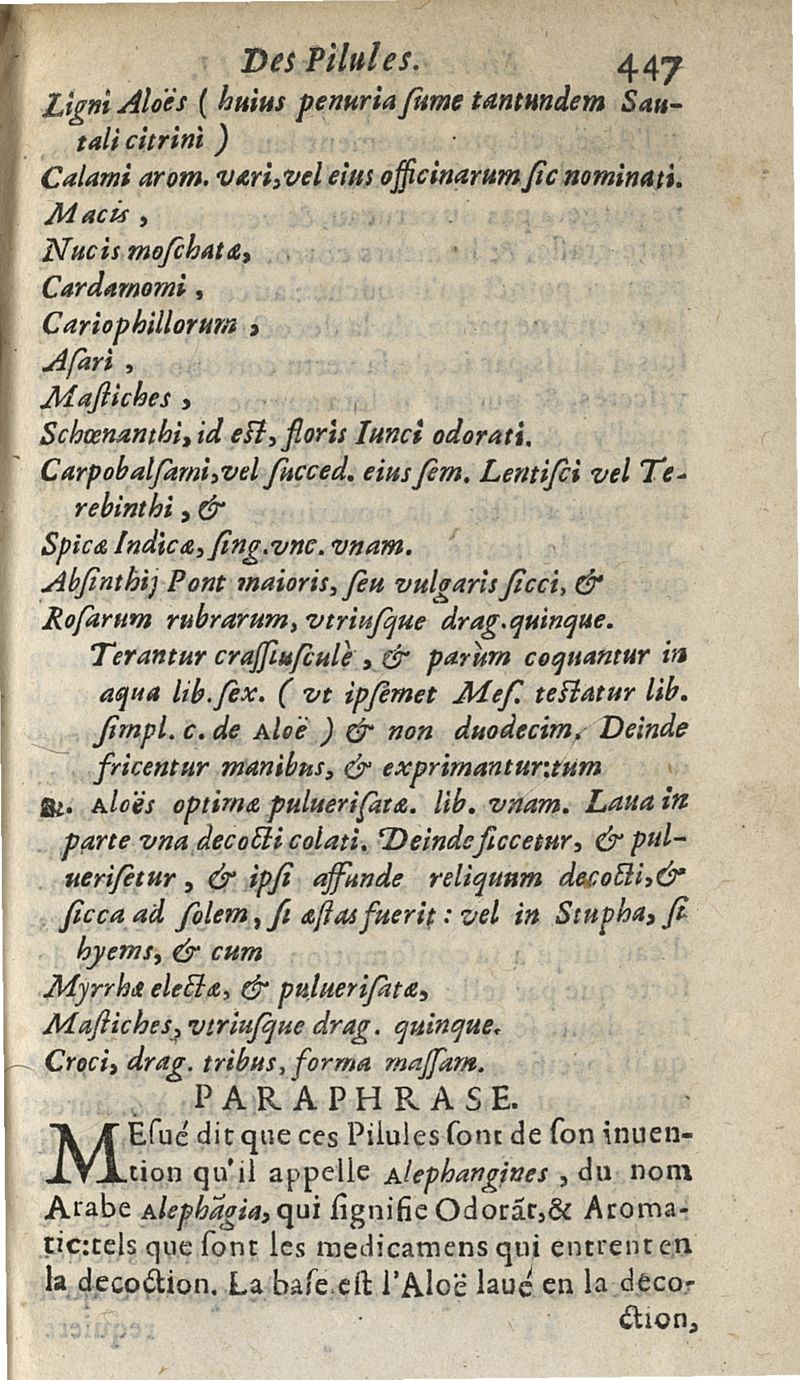 Des Pilules. 447
Ligni Aloës ( huius penuria ſume tantundem Sau-
tali citrini )
Calami arom. væri, vel eius officinarum ſic nominati.
Macis ,
Nucis moſchatæ,
Cardamomi ,
Cariophillorum ,
Aſari ,
Maſtiches ,
Schœnanthi, id eſt, floris Iunci odorati.
Carpobalſami, vel ſucced. eius ſem. Lentiſci vel Te-
rebinthi , &
Spicæ Indicæ, ſing. vnc. vnam.
Abſinthij Pont maioris, ſeu vulgaris ſicci, &
Roſarum rubrarum, vtriuſque drag. quinque.
Terantur craſſiuſculè , & parùm coquantur in
aqua lib. ſex. ( vt ipſemet Meſ. teſtatur lib.
ſimpl. c. de Aloë ) & non duodecim. Deinde
fricentur manibus, & exprimantur: tum
℞. Aloës optimæ pulueriſatæ. lib. vnam. Laua in
parte vna decocti colati. Deinde ſiccetur, & pul-
ueriſetur , & ipſi affunde reliquum decocti, &
ſicca ad ſolem, ſi æſtas fuerit : vel in Stupha, ſi
hyems, & cum
Myrrhæ electæ, & pulueriſatæ,
Maſtiches, vtriuſque drag. quinque.
Croci, drag. tribus, forma maſſam.
PARAPHRASE.
MEſué dit que ces Pilules ſont de ſon inuen-
tion qu'il appelle Alephangines , du nom
Arabe Alephãgia, qui ſignifie Odorãt, & Aroma-
tic: tels que ſont les medicamens qui entrent en
la decoction. La baſe eſt l'Aloë laué en la deco-
ction,